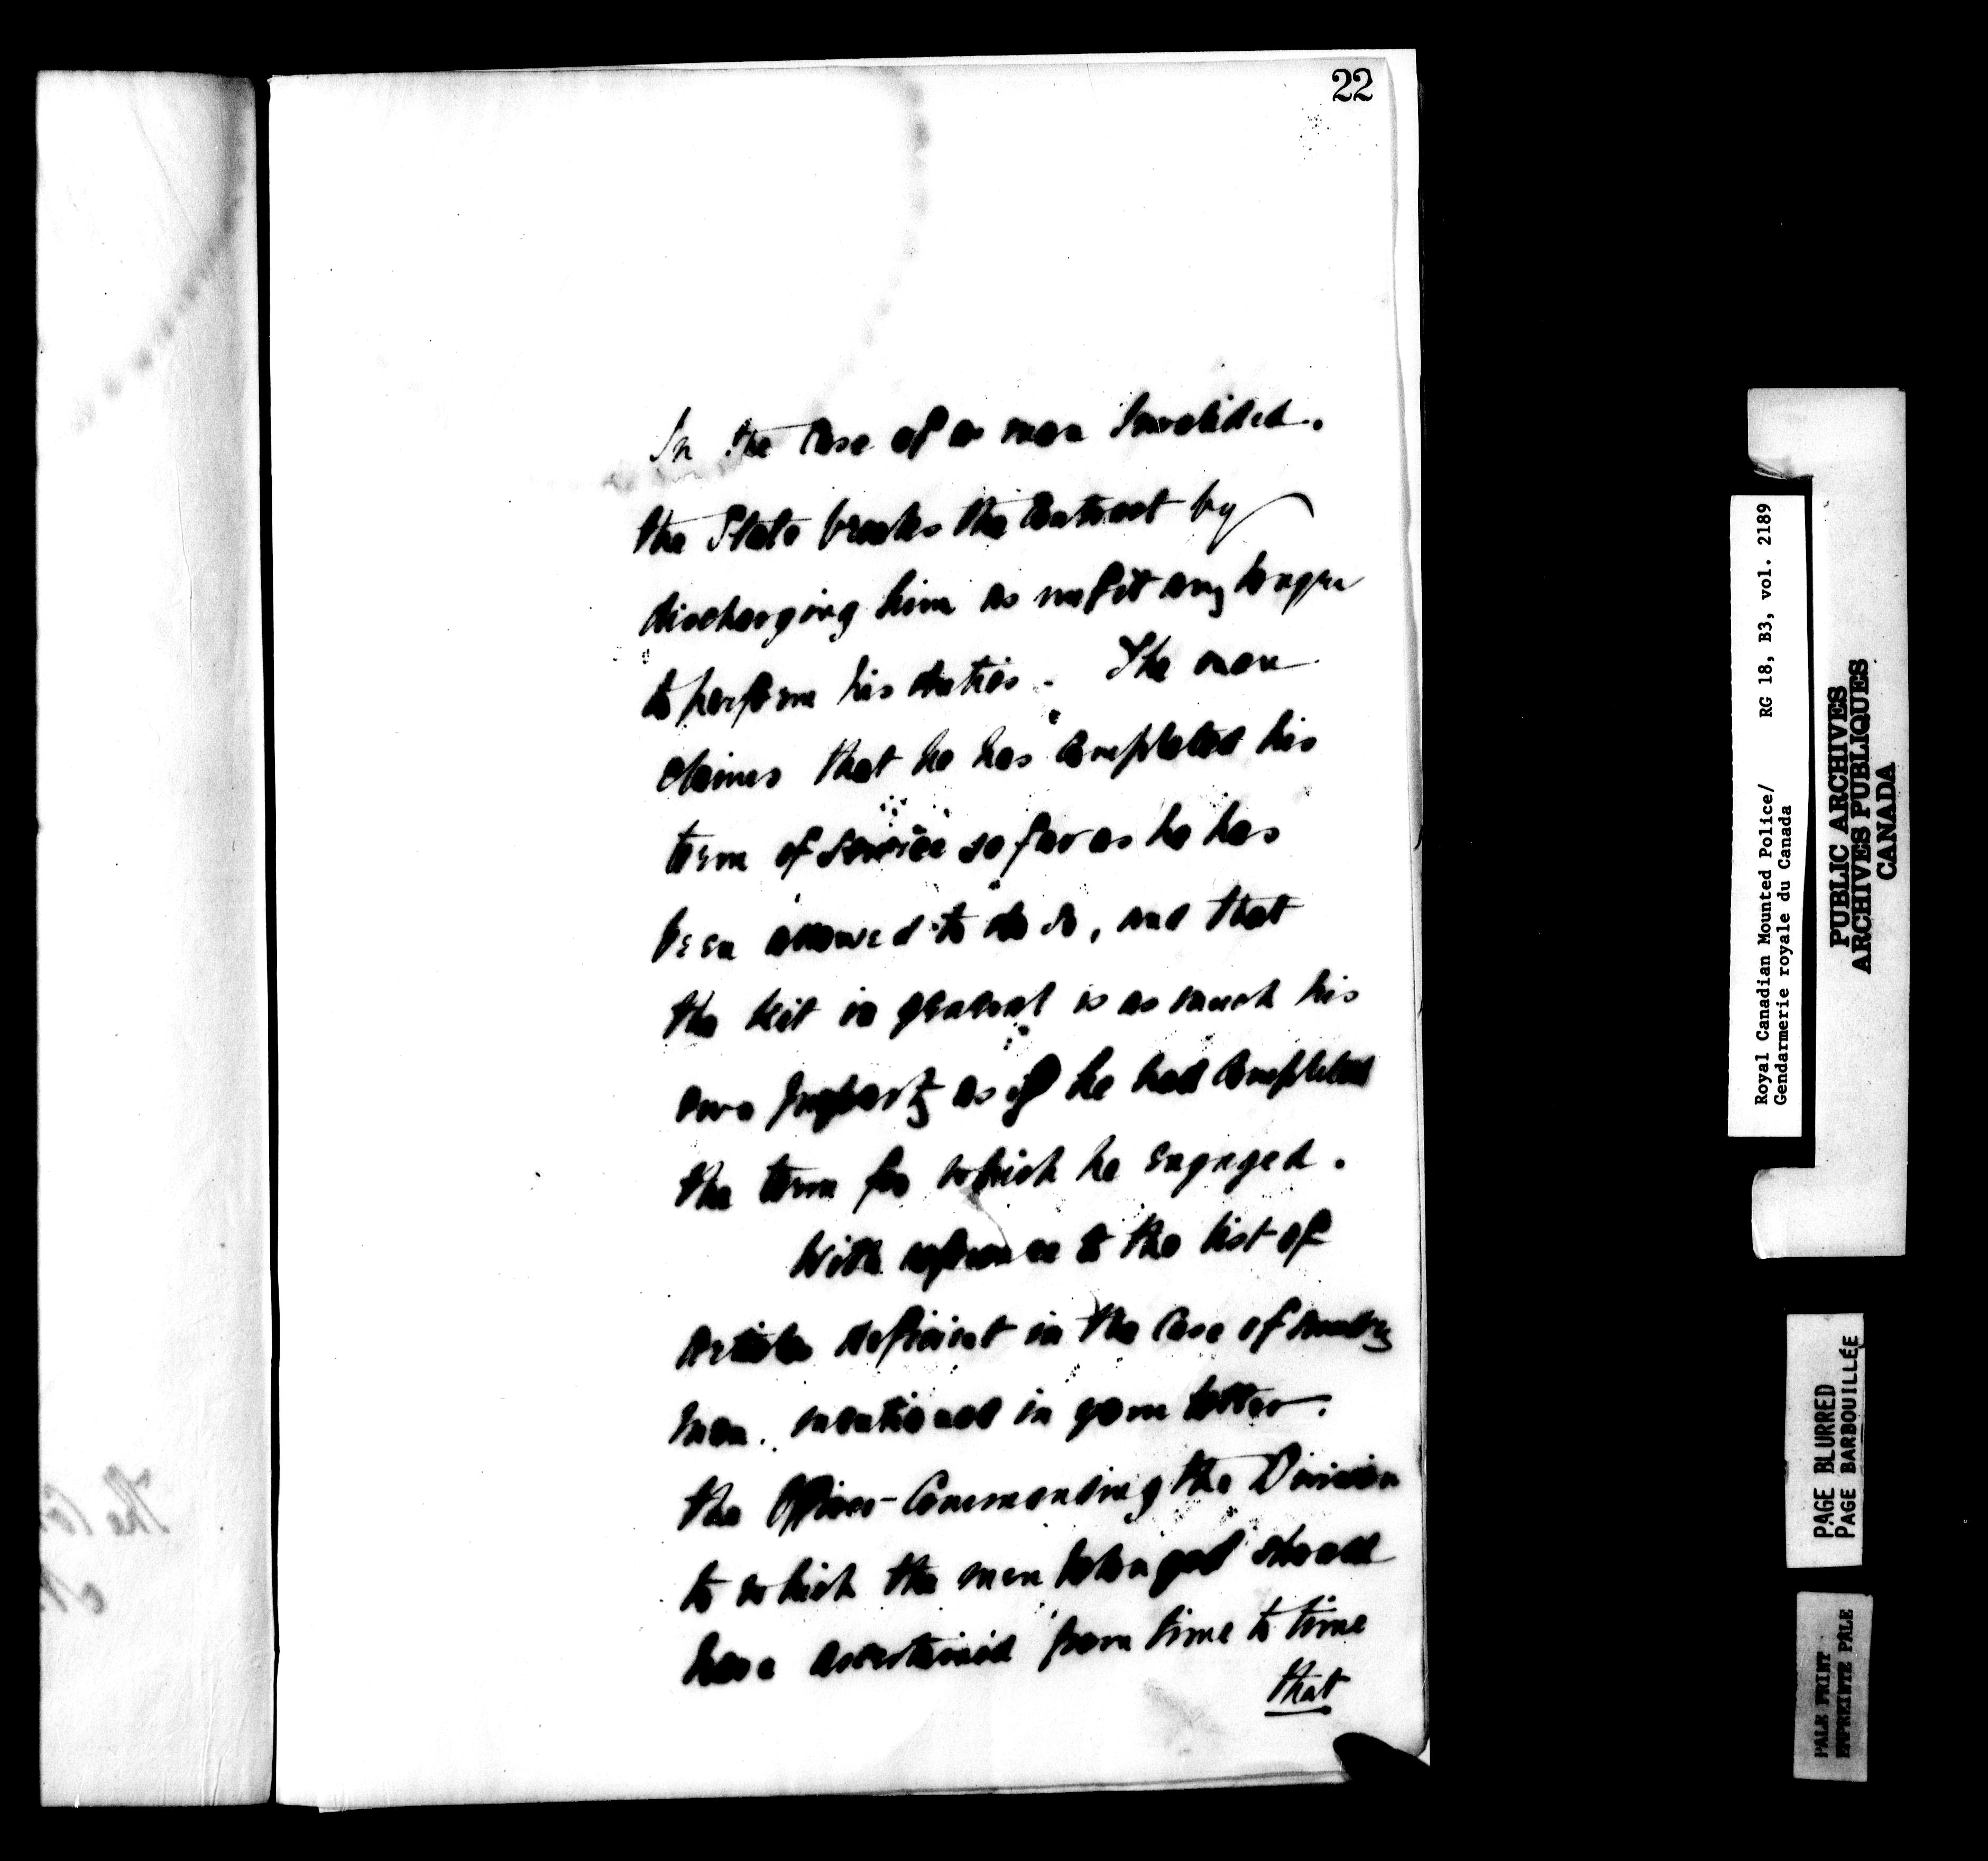 22
In the case of a man Invalided.
the State breaks the Contract by
discharging him as unfit any longer
to perform his duties. The man
claims that he has completed his
term of Service so far as he has
been allowed to do so, and that
the kit in general is as much his
own property as if he had completed
the term for which he engaged.
With reference to the list of
Articles deficient in the case of
men. mentioned in your letter.
the Officer Commanding the Division
to which the men belonged should
have ascertained from time to time
that
The
Royal Canadian Mounted Police/ RG 18, B3, vol. 2189
Gendarmerie royale du Canada
PUBLIC ARCHIVES
ARCHIVES PUBLIQUES
CANADA
PAGE BLURRED
PAGE BARBOUILLÉE
PALE PRINT
EMPREINTE PALE